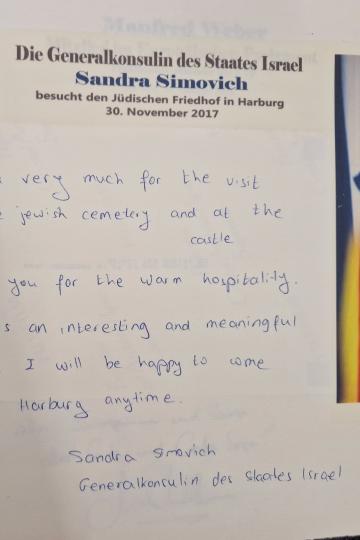 Die Generalkonsulin des Staates Israel
Sandra Simovich
besucht den Jüdischen Friedhof in Harburg
30. November 2017
very much for the visit
jewish cemetery and at the
castle
you for the warm hospitality.
s an interesting and meaningful
I will be happy to come
Harburg anytime.
Sandra Simovich
Generalkonsulin des Staates Israel